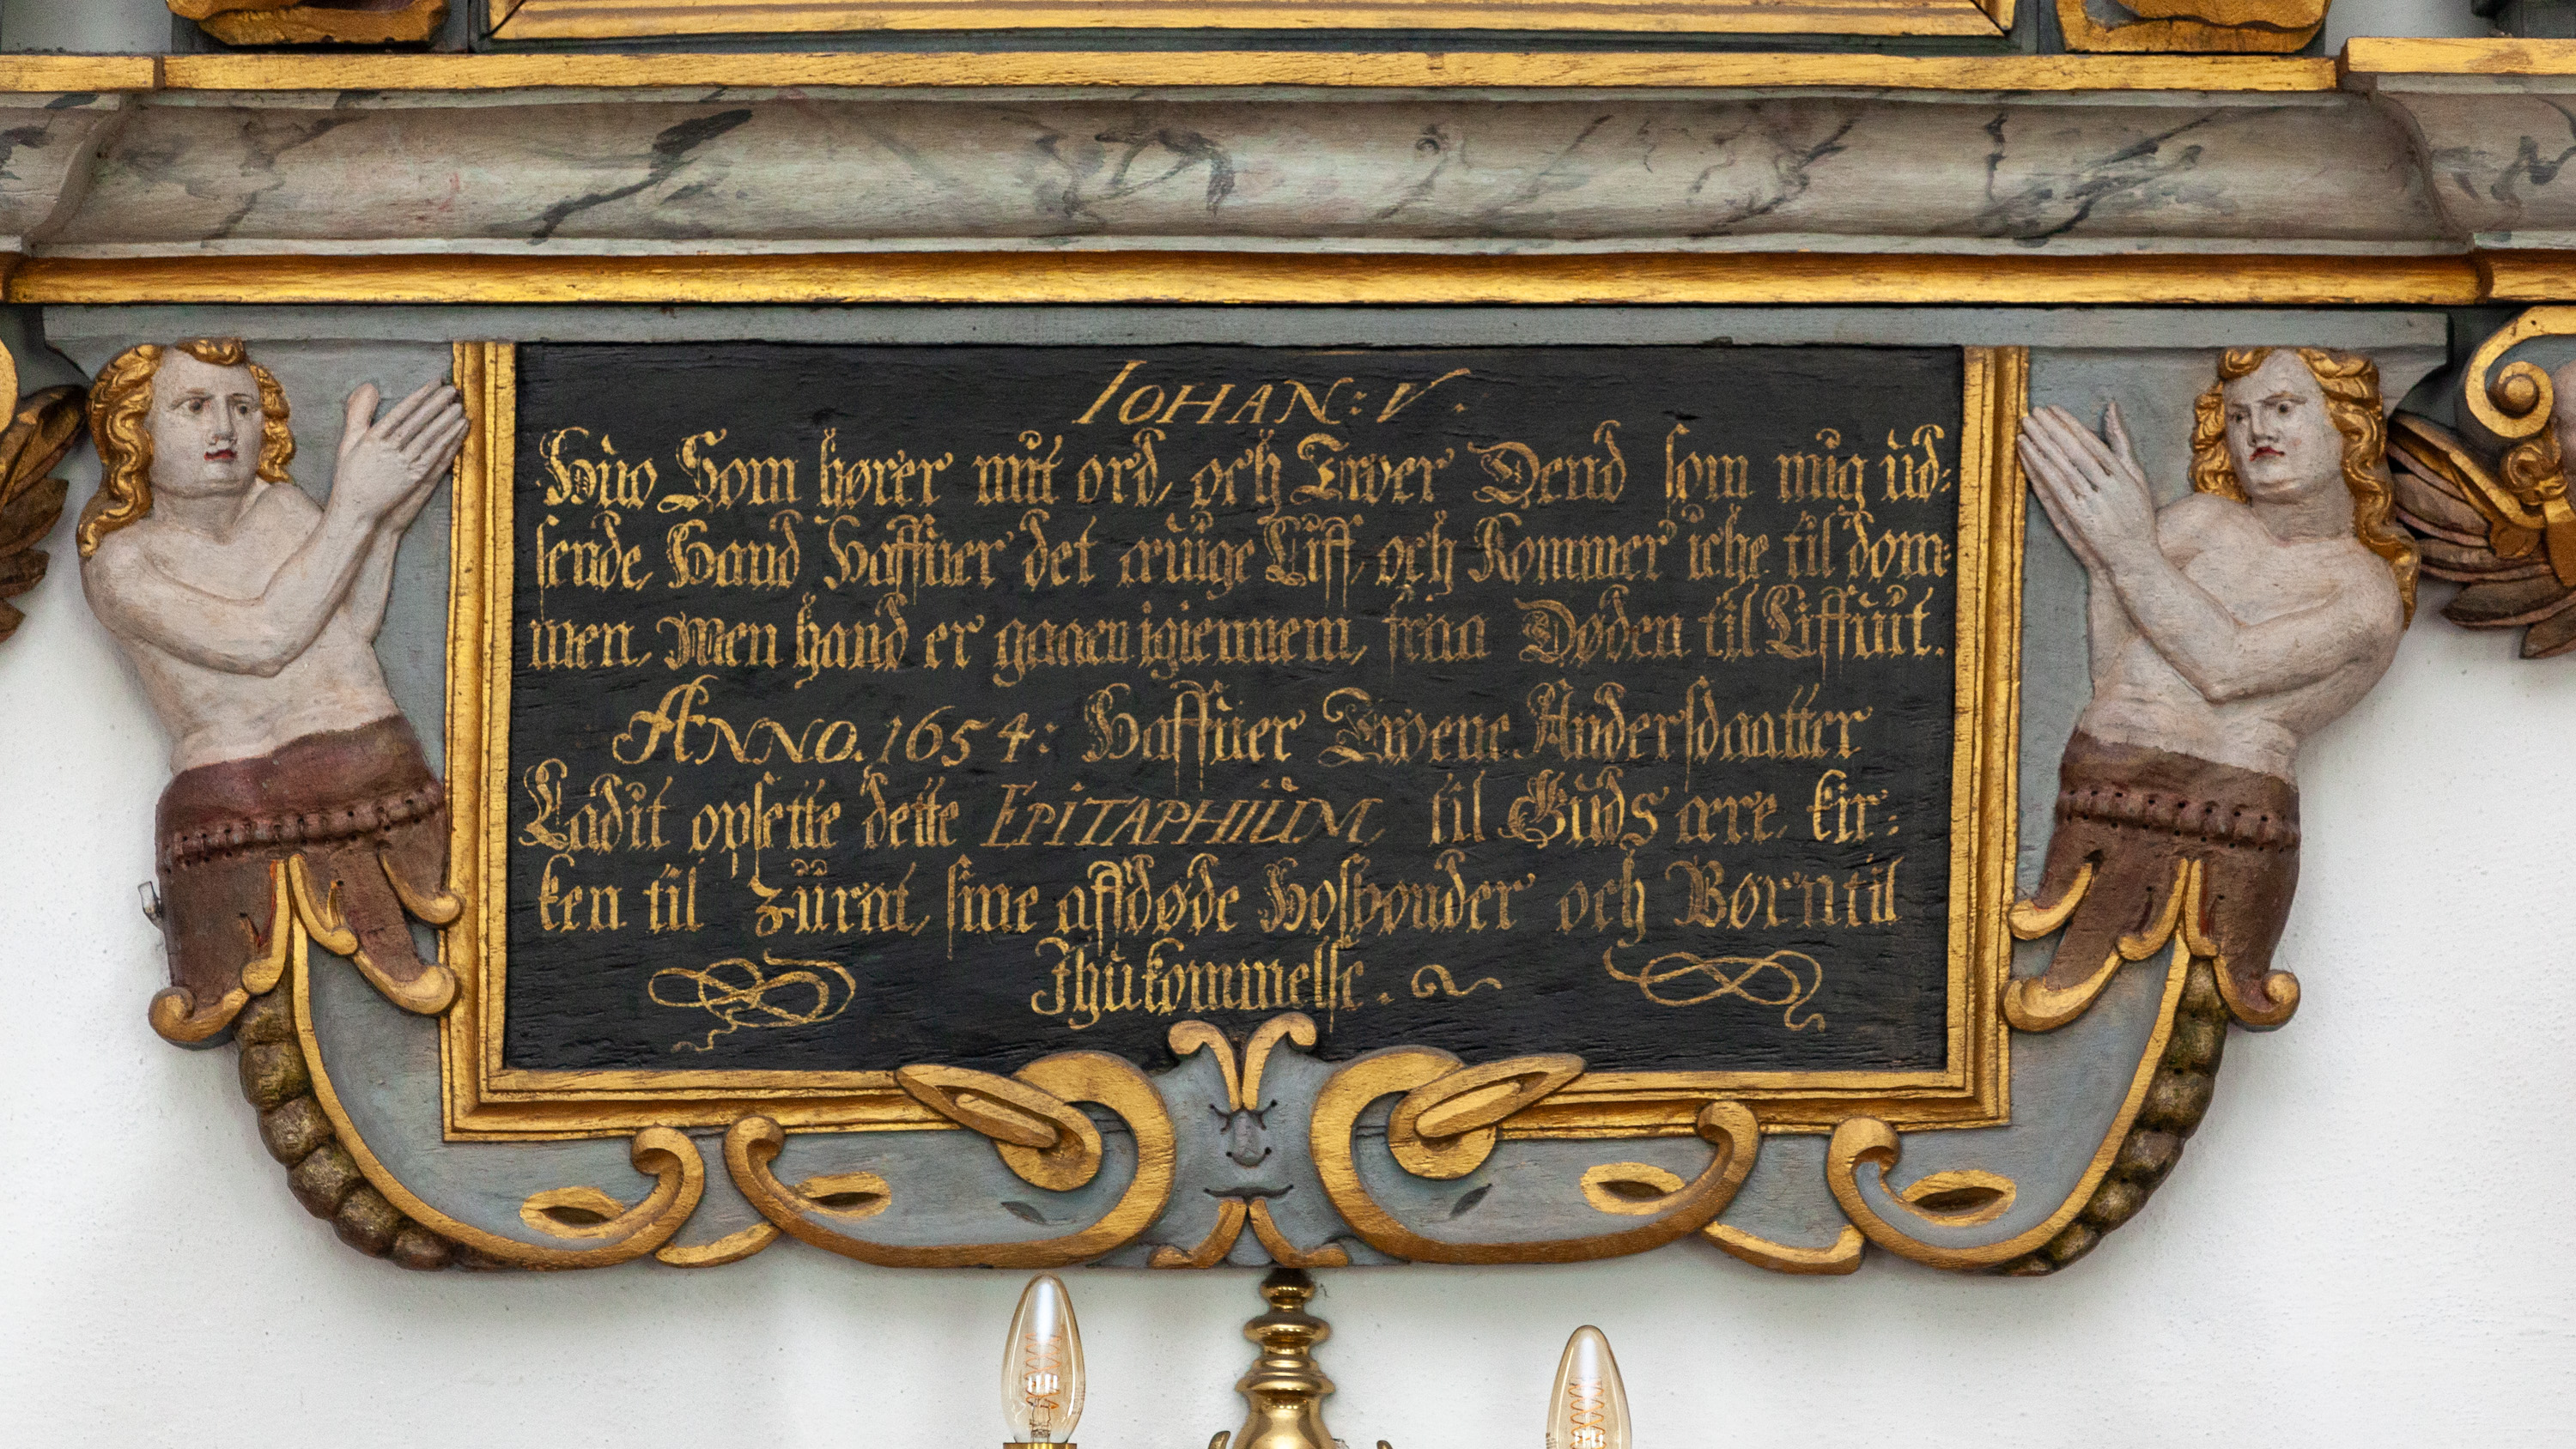 IOHAN: V.
Huo Som hører mit ord, och Troer Dend som mig ud:
sende, Hand Haffuer det æuige Liff, och Kommer iche til dom:
men, Men hand er gaaen igiennem, fraa Døden til Liffuit.
ANNO. 1654: Haffuer Andersdaatter
Ladit opsette dette EPITAPHIUM, til Guds ære, kir:
ken til zürat, sine affdøde Hosbonder och Børn til
Ihukommelse.